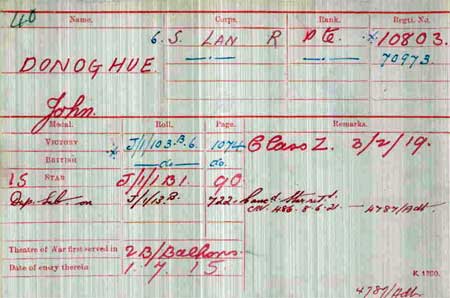 40 Name. Corps. Rank. Regtl. No.
6. S. LAN R Pte. *10803.
DONOGHUE. —.— —.— 70973.
John.
Medal. Roll. Page. Remarks.
VICTORY * J/1/103.B.6 1074 Class Z. 3/2/19.
BRITISH — do — do.
15 STAR J/1/1B1. 90.
J/1/13.B. 722
486. 8.6.21. — 4787/Adt.
Theatre of War first served in 2B/Balkans
Date of entry therein 1.7.15.
K. 1380.
4787/Adt.